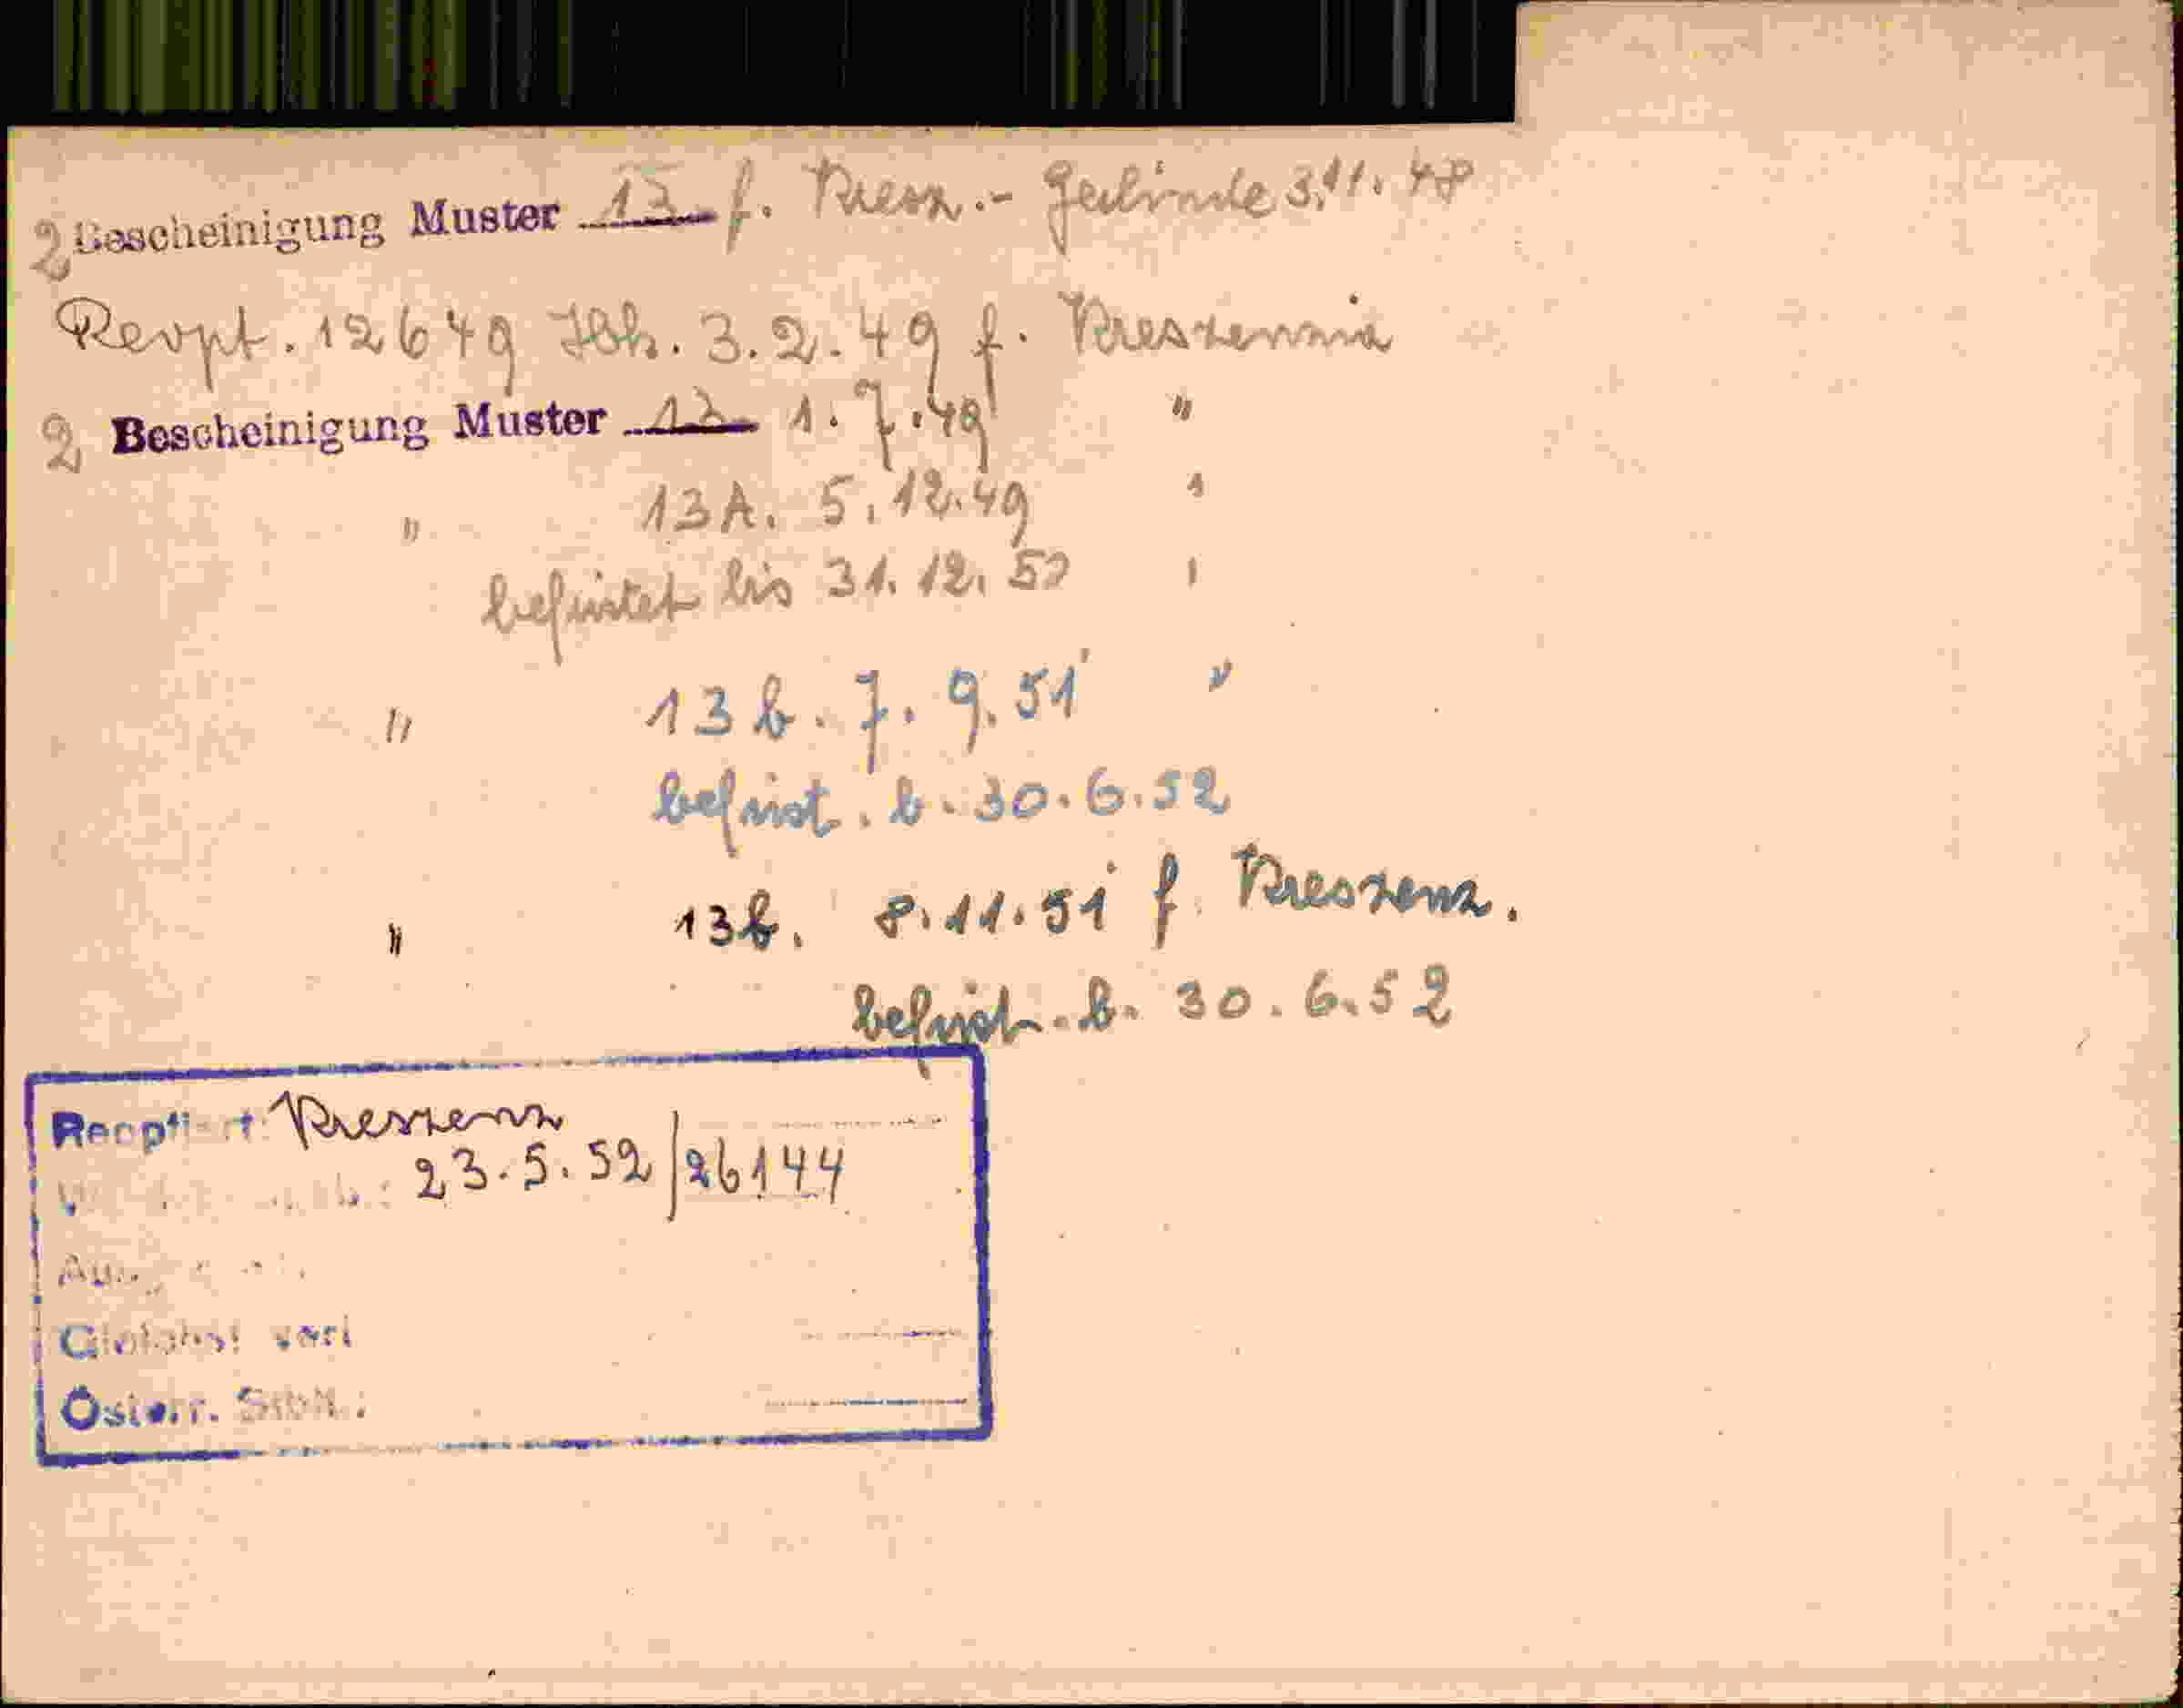 2 Bescheinigung Muster 13 f. Kresz.- Gerlinde 3.11.48
Reopt. 12649 Ibk. 3.2.49 f. Kreszennia
2 Bescheinigung Muster 13 1.7.49 "
" 13A. 5.12.49 "
befristet bis 31.12.50 "
" 13b. 7.9.51 "
befrist. b. 30.6.52
" 13b. 8.11.51 f. Kreszenz.
befrist. b. 30.6.52
Reoptiert: Kreszenz
23.5.52/26144
Österr.